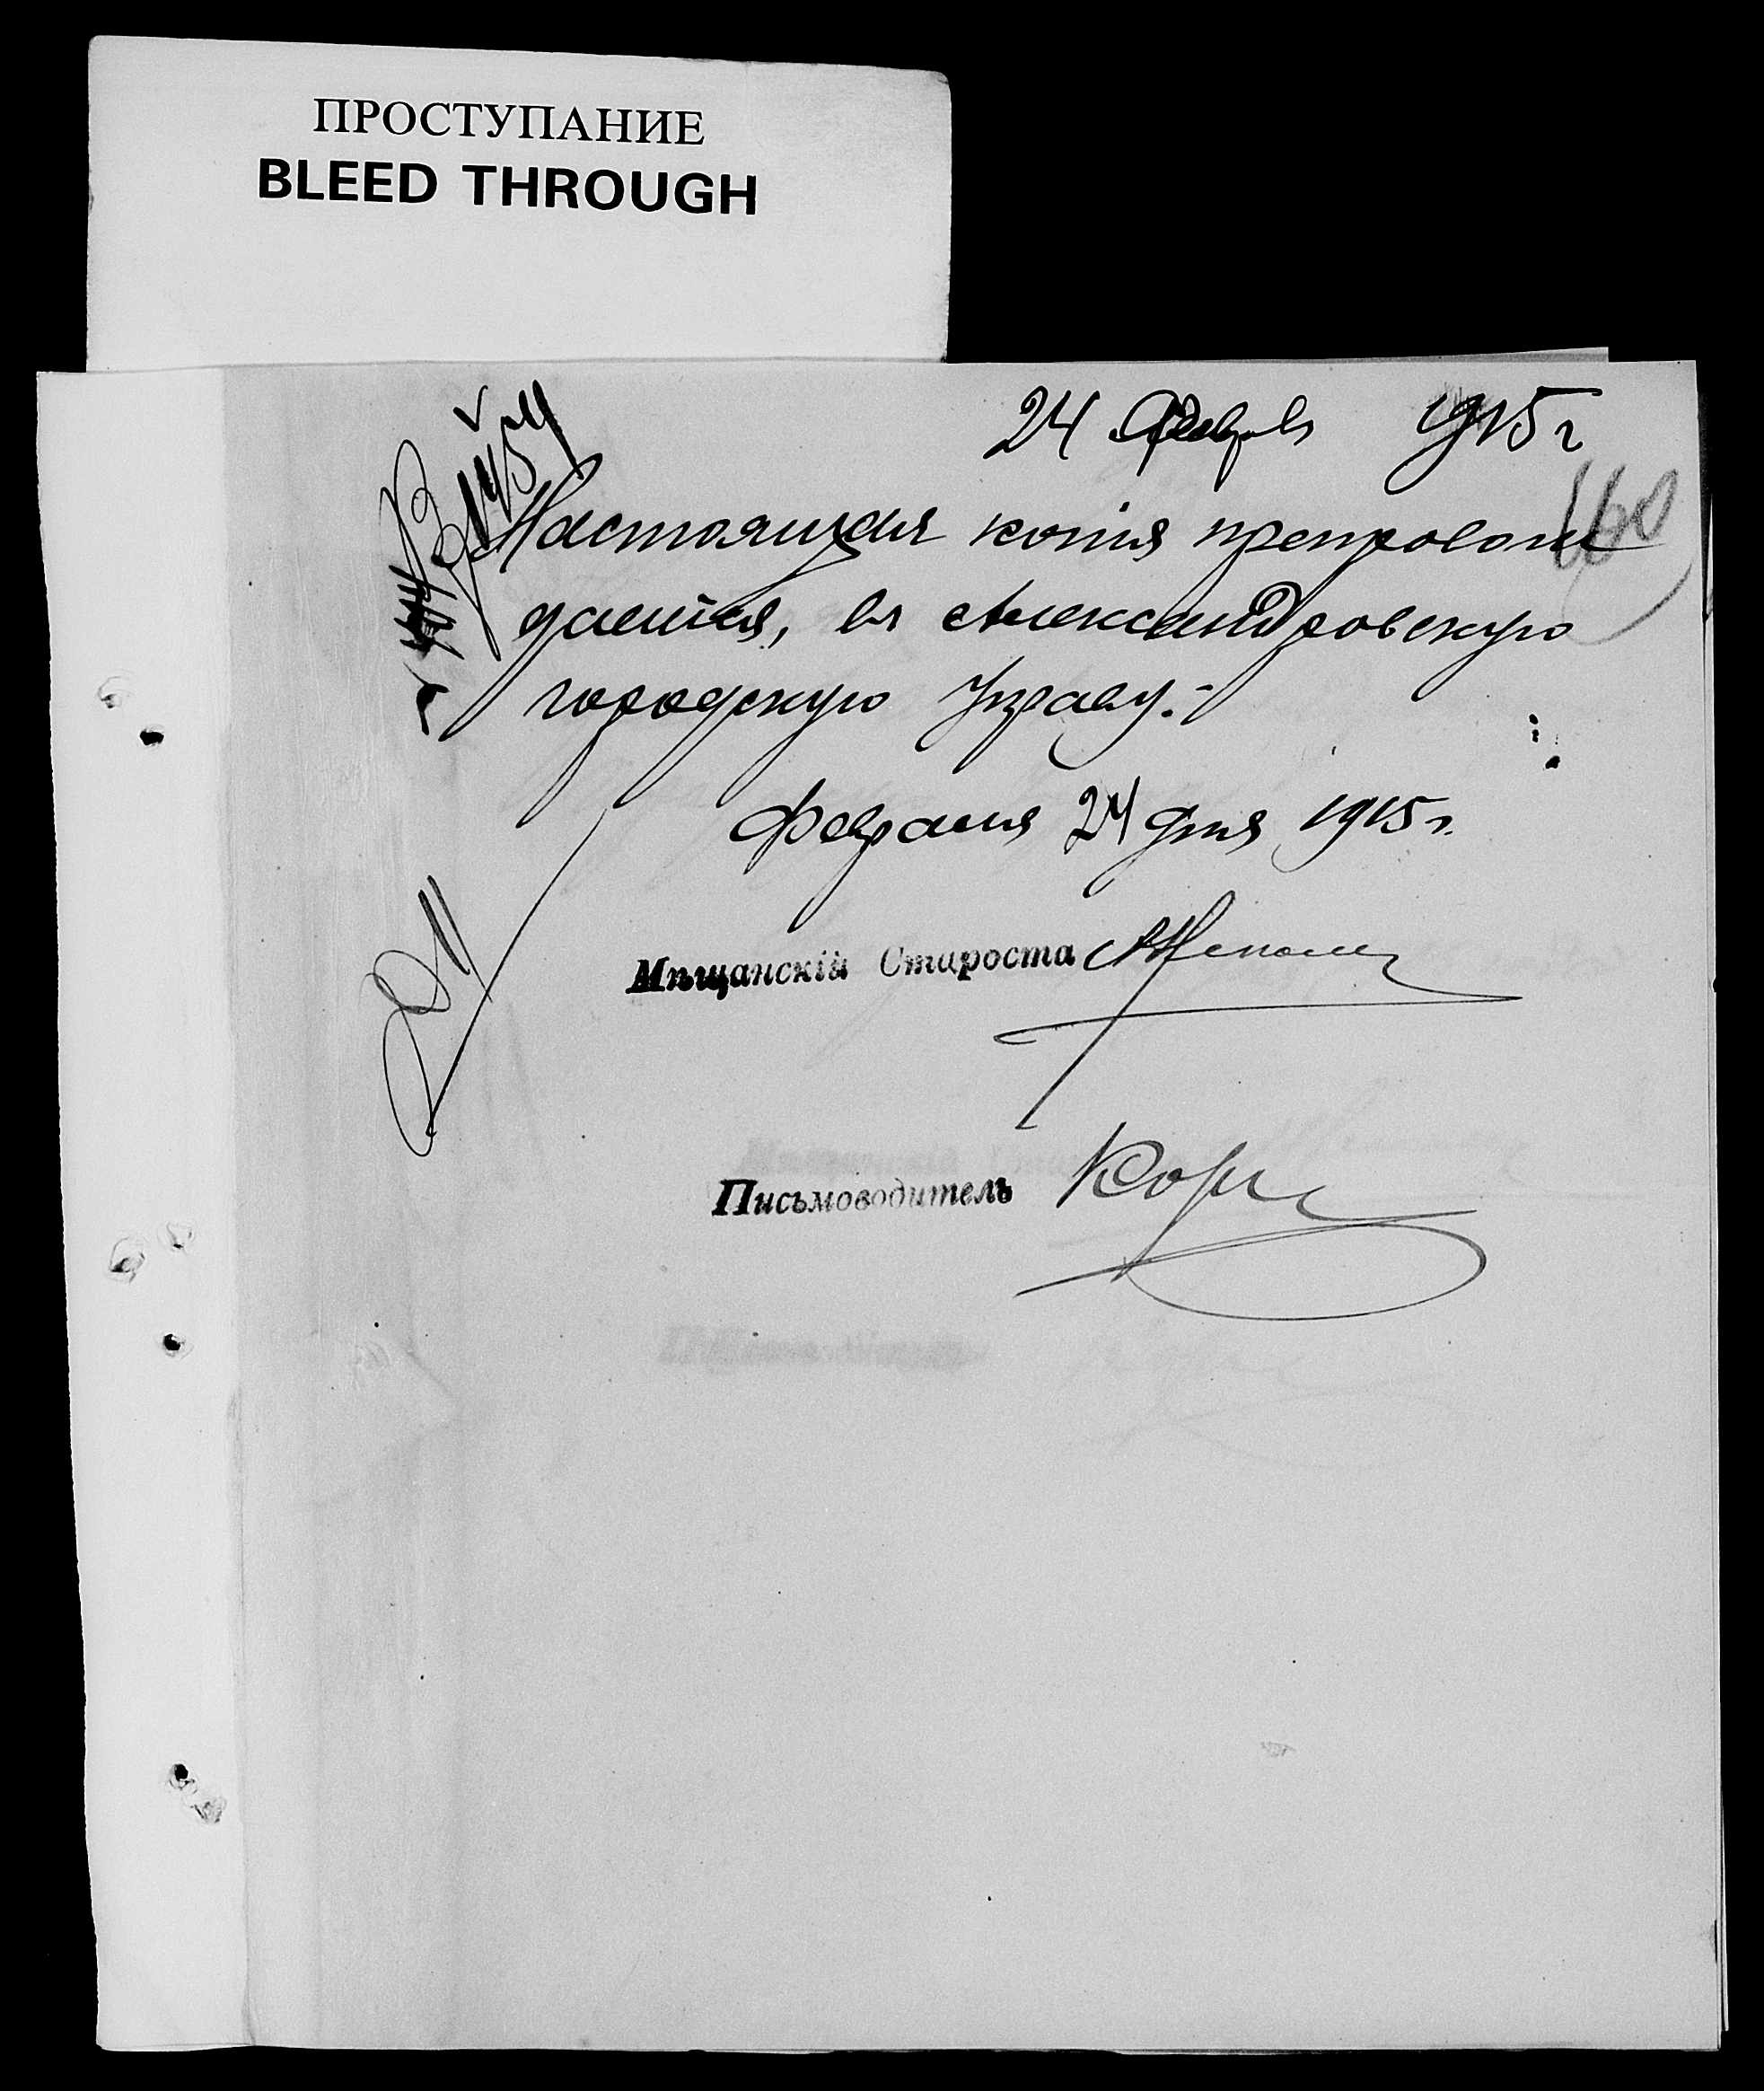 ПРОСТУПАНИЕ
BLEED THROUGH
24 Февр. 1915 г
Настоящая копія препровож
дается, въ Александровскую
городскую Управу.-
Февраля 24 дня 1915 г.
Мѣщанскій Староста
Письмоводитель